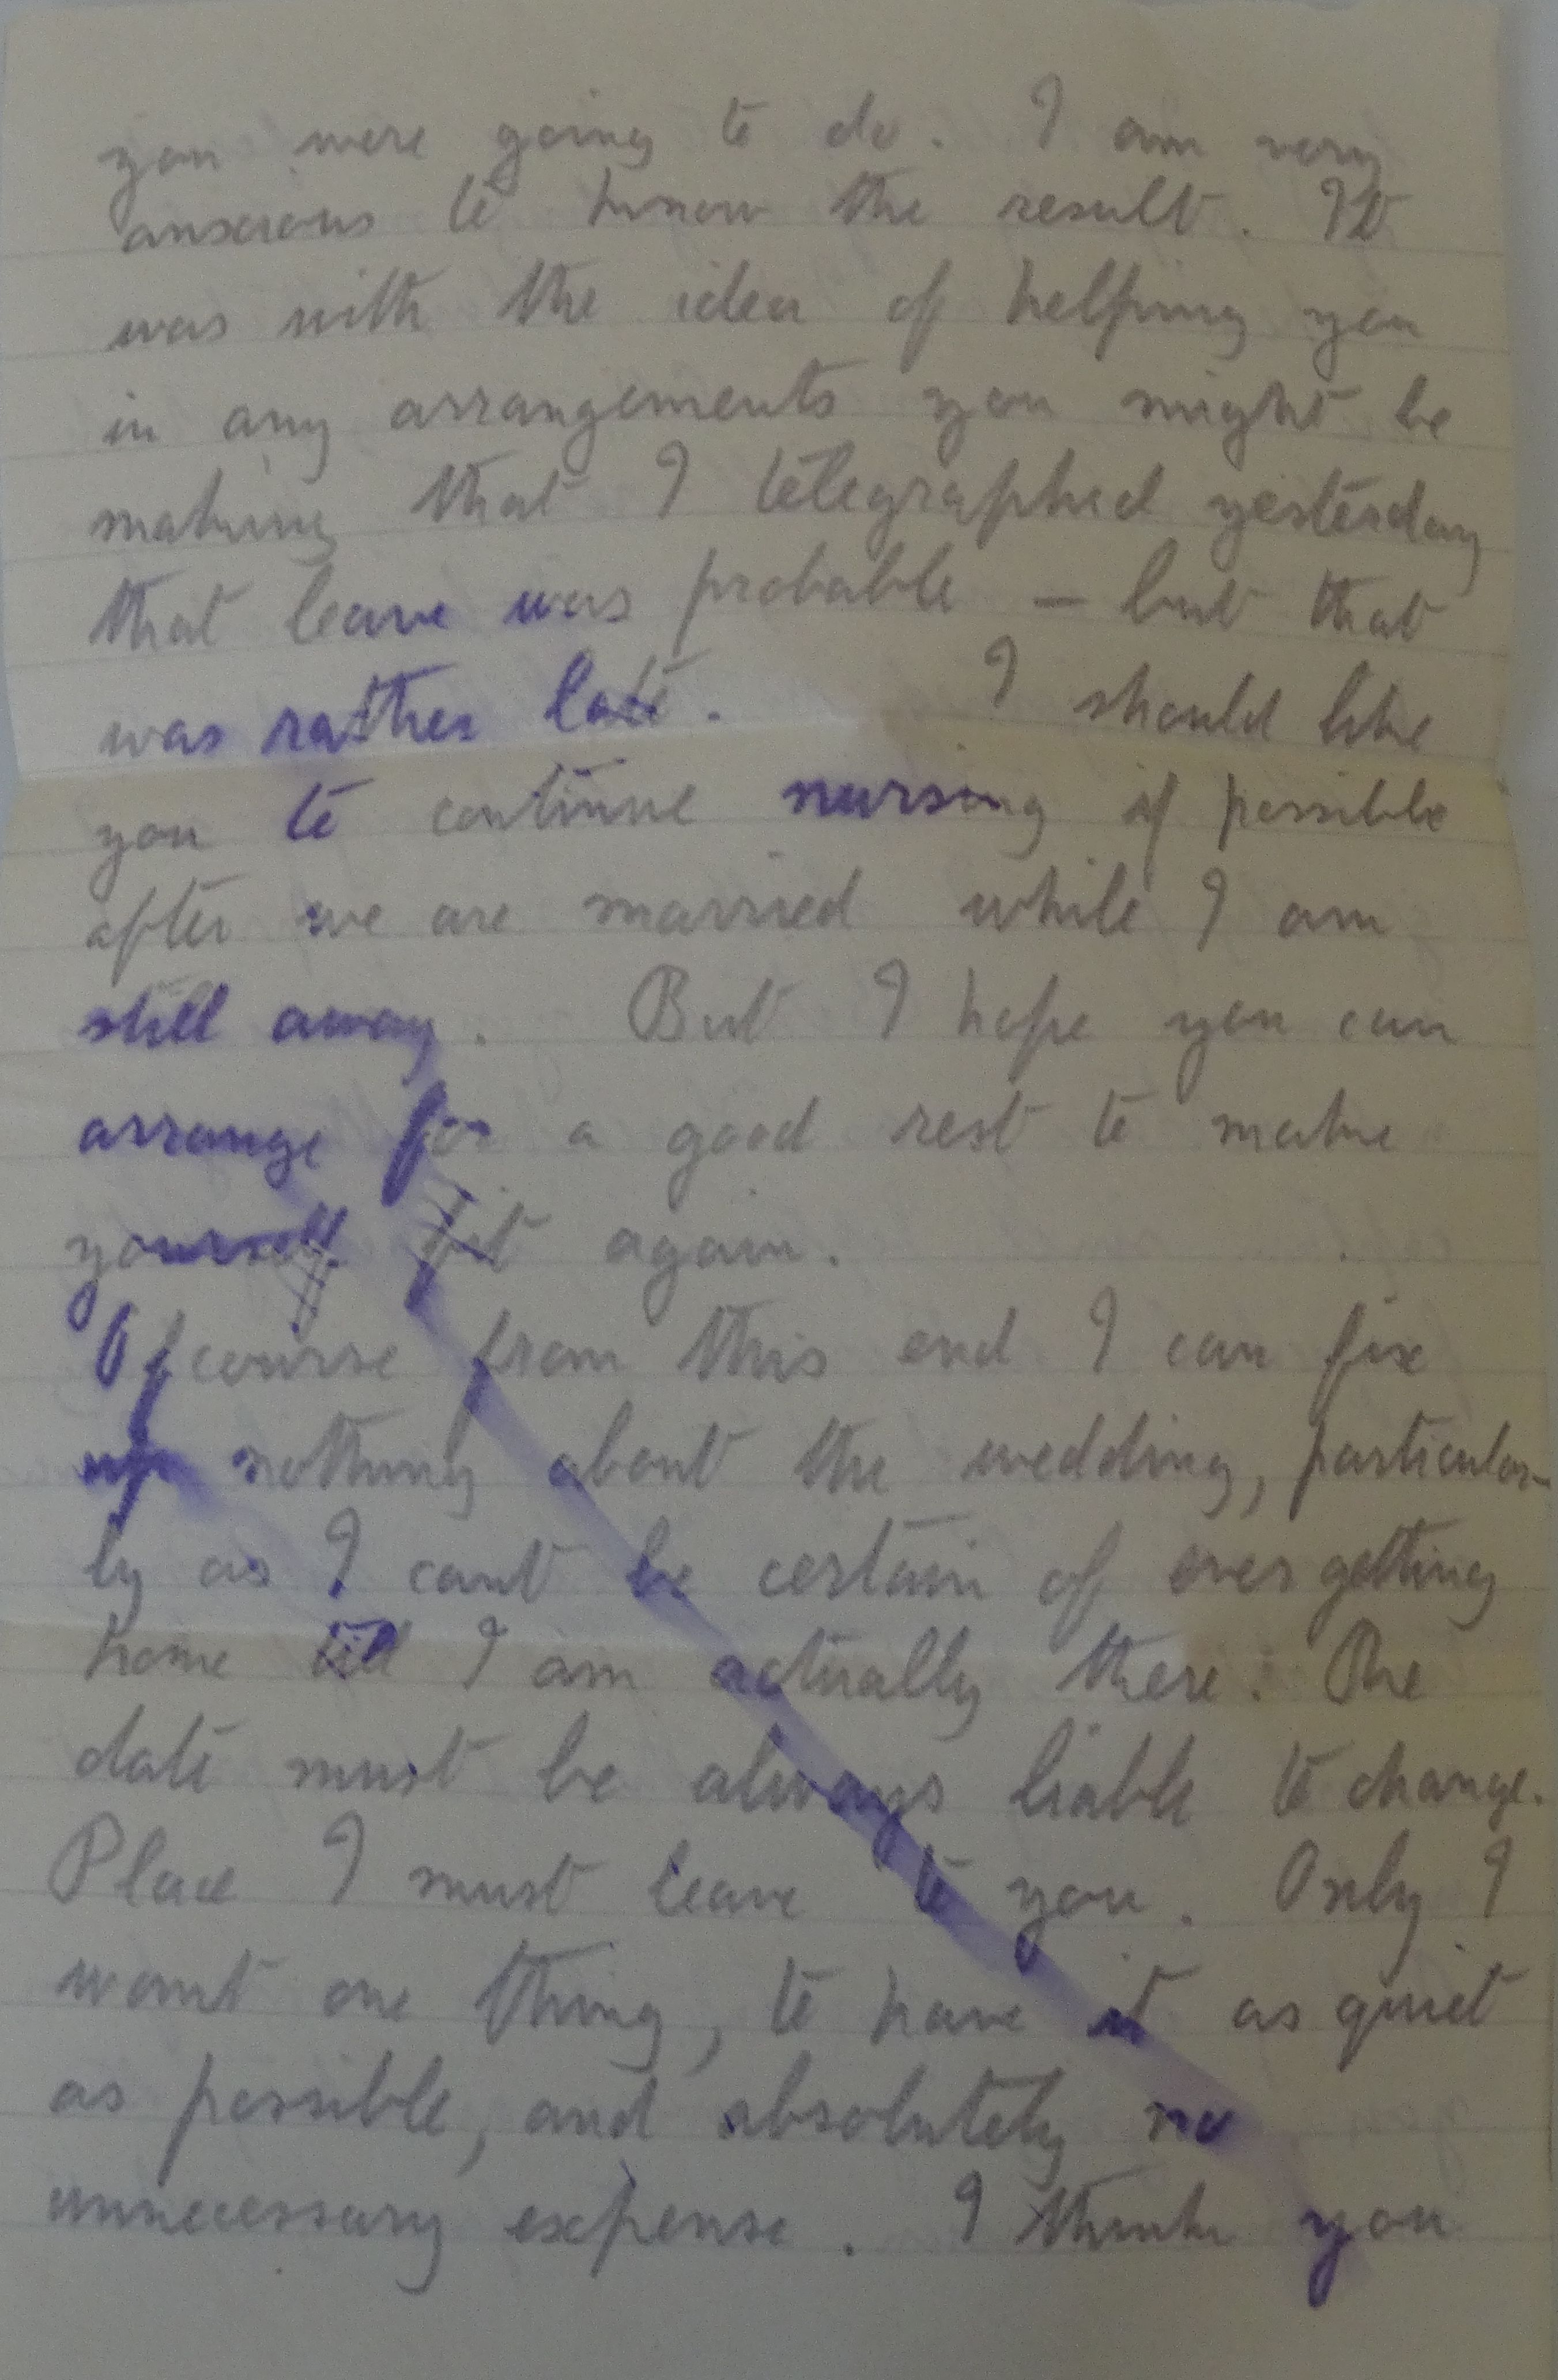 you were going to do. I am very
anxious to know the result. It
was with the idea of helping you
in any arrangements you might be
making that I telegraphed yesterday
that leave was probable – but that
was rather late. I should like
you to continue nursing if possible
after we are married while I am
still away. But I hope you can
arrange for a good rest to make
yourself fit again.
Of course from this end I can fix
up nothing about the wedding, particular-
ly as I cant be certain of ever getting
home till I am actually there. The
date must be always liable to change.
Place I must leave to you. Only I
want one thing, to have it as quiet
as possible, and absolutely no
unnecessary expense. I think you